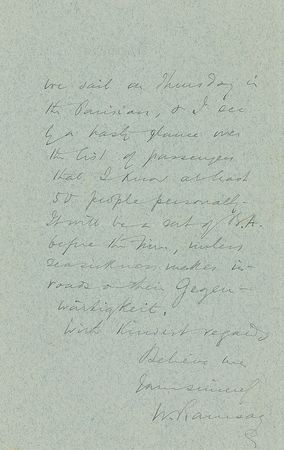 We sail on Thursday in
the Parisian, & I see
by a hasty glance over
the list of passengers
that I know at least
50 people personally.
It will be a sort of B.A.
before the time, unless
seasickness makes in-
roads on their Gegen-
wärtigkeit.
With kindest regards
Believe me
Yours sincerely
W. Ramsay